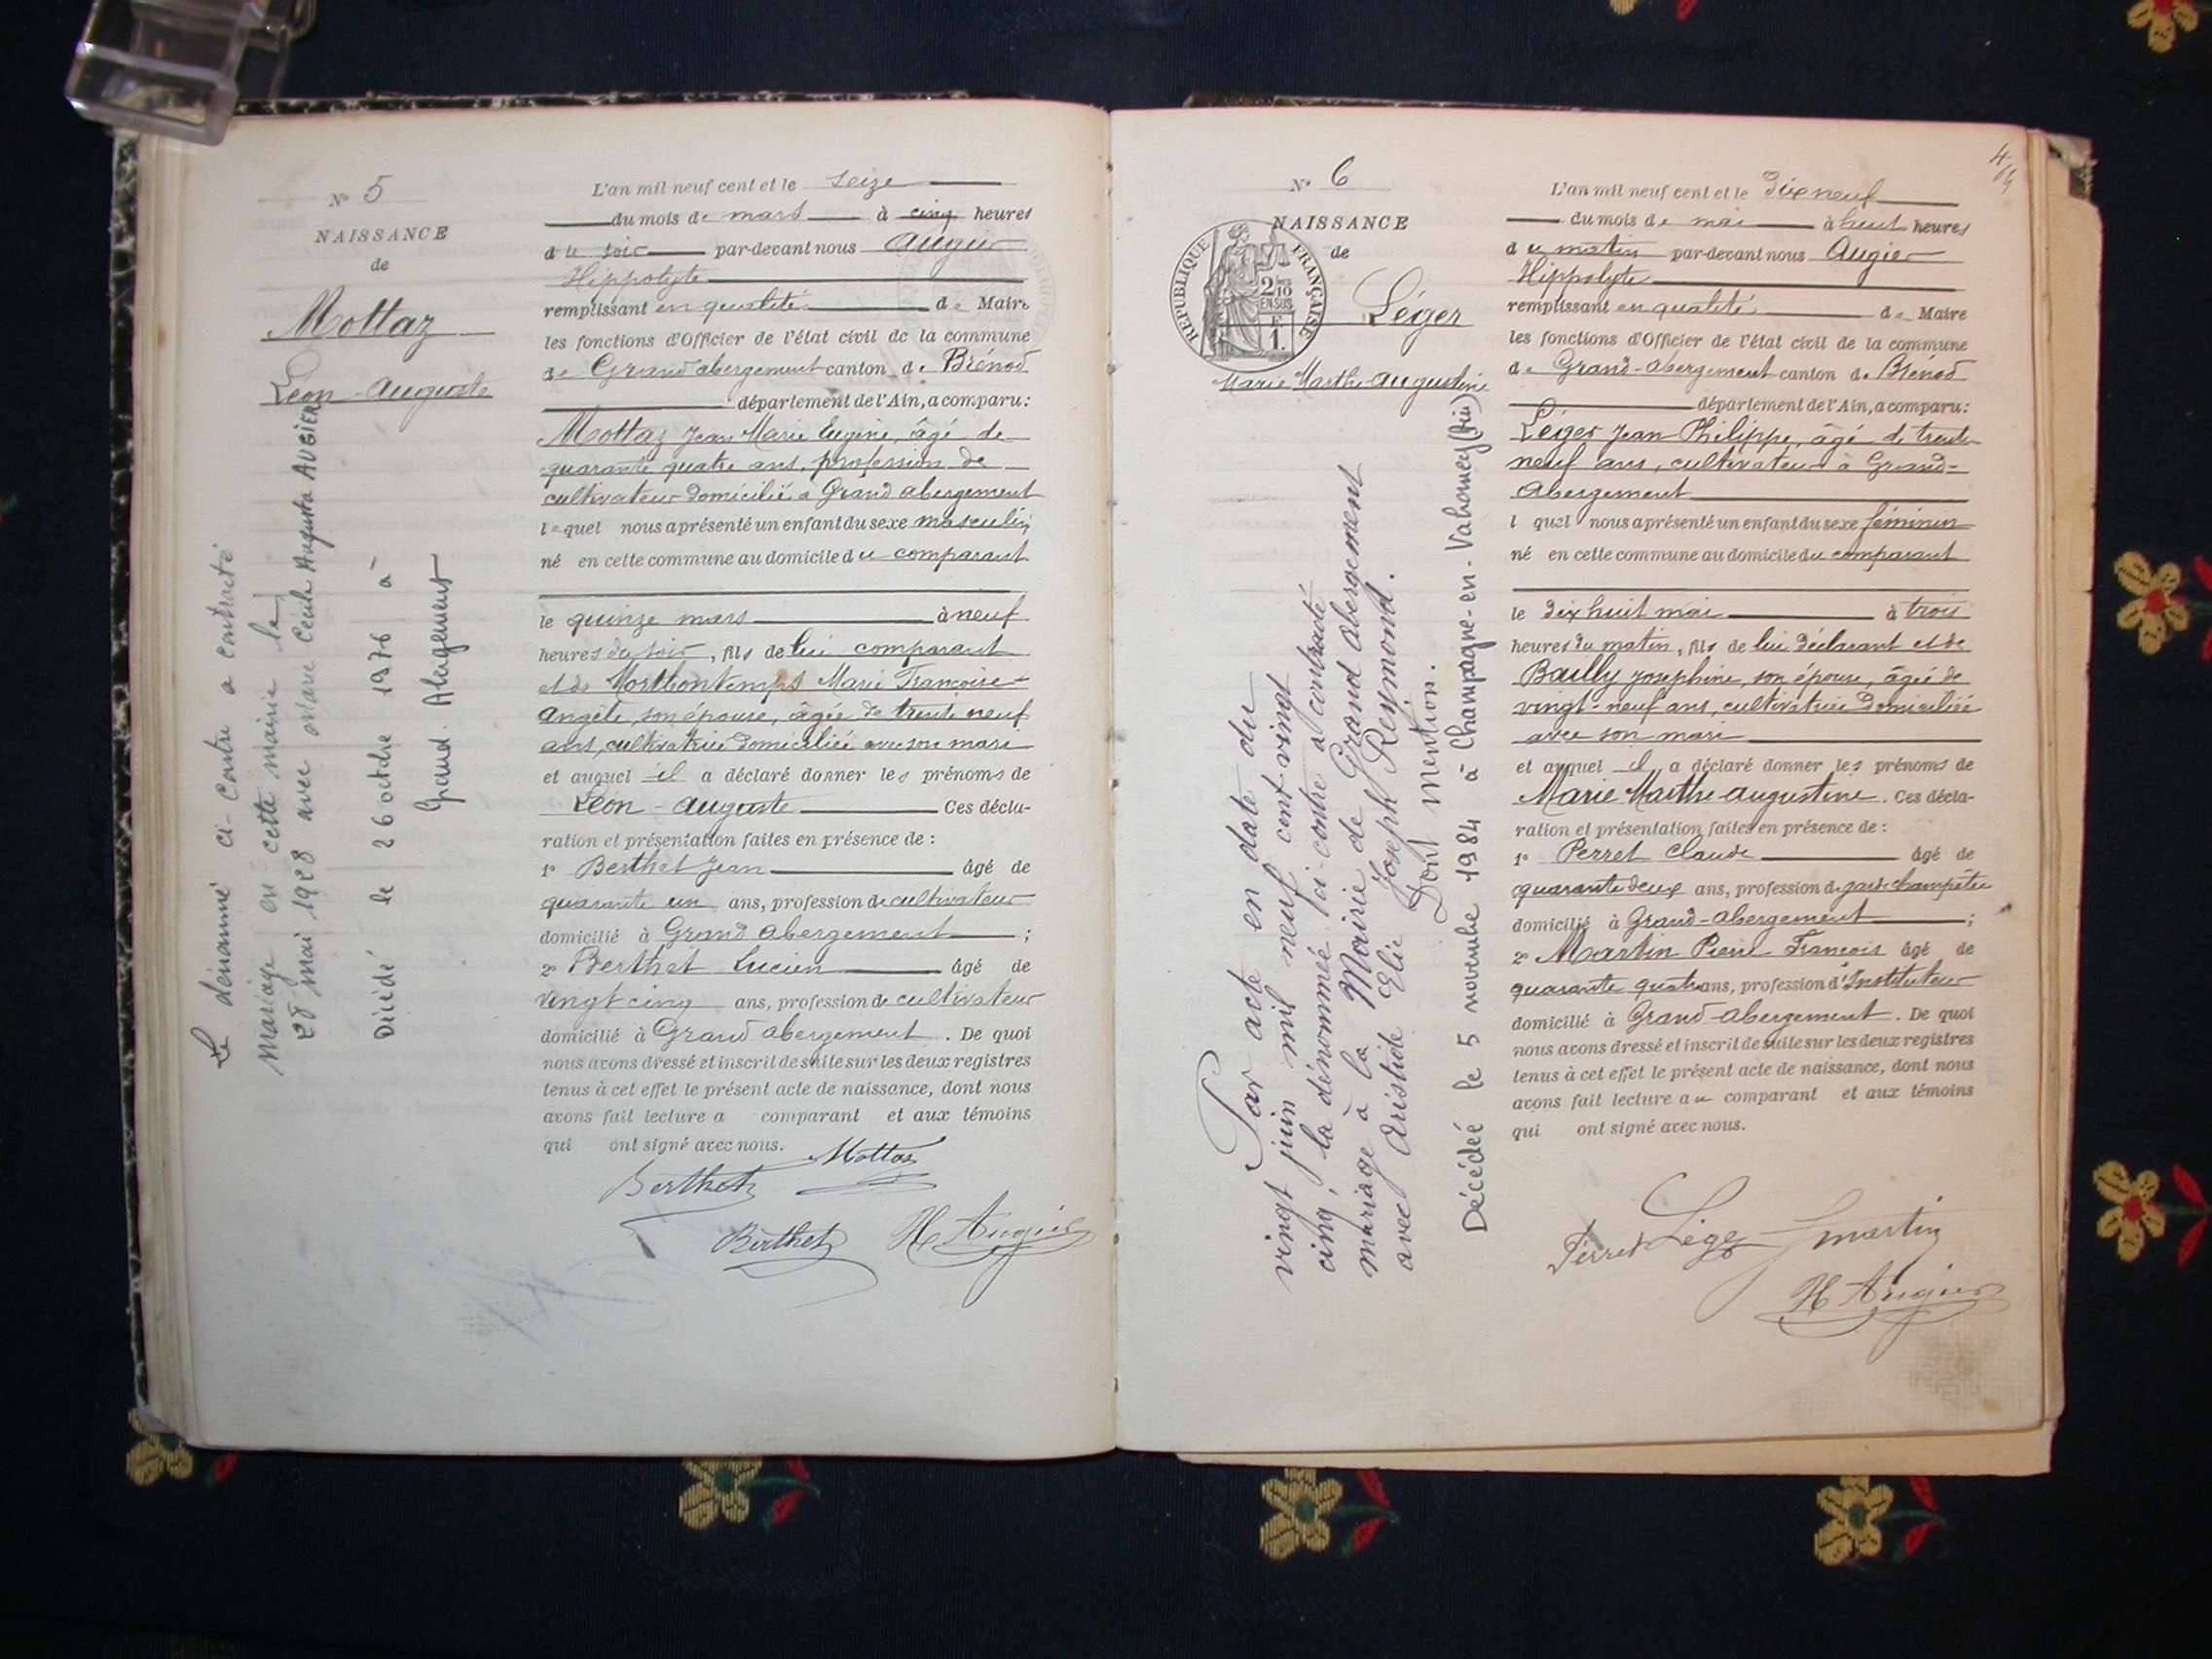 N° 5
NAISSANCE
de
Mottaz
Léon-Auguste
Le dénommé ci-contre a contracté
mariage en cette mairie le
28 mai 1928 avec Marie Cécile Augusta AUGIER
Décédé le 26 octobre 1976 à
Grand Abergement
L'an mil neuf cent et le seize
du mois de mars à cinq heures
du soir par-devant nous Augier
Hippolyte
remplissant en qualité de Maire
les fonctions d'Officier de l'état civil de la commune
de Grand abergement canton de Brénod
département de l'Ain, a comparu :
Mottaz Jean Marie Eugène, âgé de
quarante quatre ans, profession de
cultivateur domicilié à Grand abergement
lequel nous a présenté un enfant du sexe masculin
né en cette commune au domicile du comparant
le quinze mars à neuf
heures du soir, fils de lui comparant
et de Marie Françoise
Angèle, son épouse, âgée de trente neuf
ans, cultivatrice domiciliée avec son mari
et auquel il a déclaré donner les prénoms de
Léon-Auguste Ces décla-
ration et présentation faites en présence de :
1° Berthet Jean âgé de
quarante un ans, profession de cultivateur
domicilié à Grand abergement ;
2° Berthet Lucien âgé de
vingt cinq ans, profession de cultivateur
domicilié à Grand abergement. De quoi
nous avons dressé et inscrit de suite sur les deux registres
tenus à cet effet le présent acte de naissance, dont nous
avons fait lecture a comparant et aux témoins
qui ont signé avec nous.
Mottaz
Berthet
Berthet H Augier
4
N° 6
NAISSANCE
de
REPUBLIQUE FRANÇAISE
2/10
EN SUS
F
1.
Léger
Marie Marthe Augustine
Par acte en date du
vingt juin mil neuf cent vingt
cinq, la dénommée ci-contre a contracté
mariage à la Mairie de Grand Abergement
avec Aristide Elie Joseph Reymond.
Dont mention.
Décédée le 5 novembre 1984 à Champagne-en-Valromey (Ain)
L'an mil neuf cent et le dix neuf
du mois de mai à huit heures
du matin par-devant nous Augier
Hippolyte
remplissant en qualité de Maire
les fonctions d'Officier de l'état civil de la commune
de Grand-abergement canton de Brénod
département de l'Ain, a comparu :
Léger Jean Philippe, âgé de trente
neuf ans, cultivateur à Grand-
Abergement
l quel nous a présenté un enfant du sexe féminin
né en cette commune au domicile du comparant
le dix huit mai à trois
heures du matin, fils de lui déclarant et de
Bailly Joséphine, son épouse, âgée de
vingt-neuf ans, cultivatrice domiciliée
avec son mari
et auquel il a déclaré donner les prénoms de
Marie Marthe Augustine. Ces décla-
ration et présentation faites en présence de :
1° Perret Claude âgé de
quarante deux ans, profession de garde champêtre
domicilié à Grand-abergement ;
2° Martin Pierre François âgé de
quarante quatre ans, profession d'Instituteur
domicilié à Grand-abergement. De quoi
nous avons dressé et inscrit de suite sur les deux registres
tenus à cet effet le présent acte de naissance, dont nous
avons fait lecture au comparant et aux témoins
qui ont signé avec nous.
Perret Léger Martin
H Augier